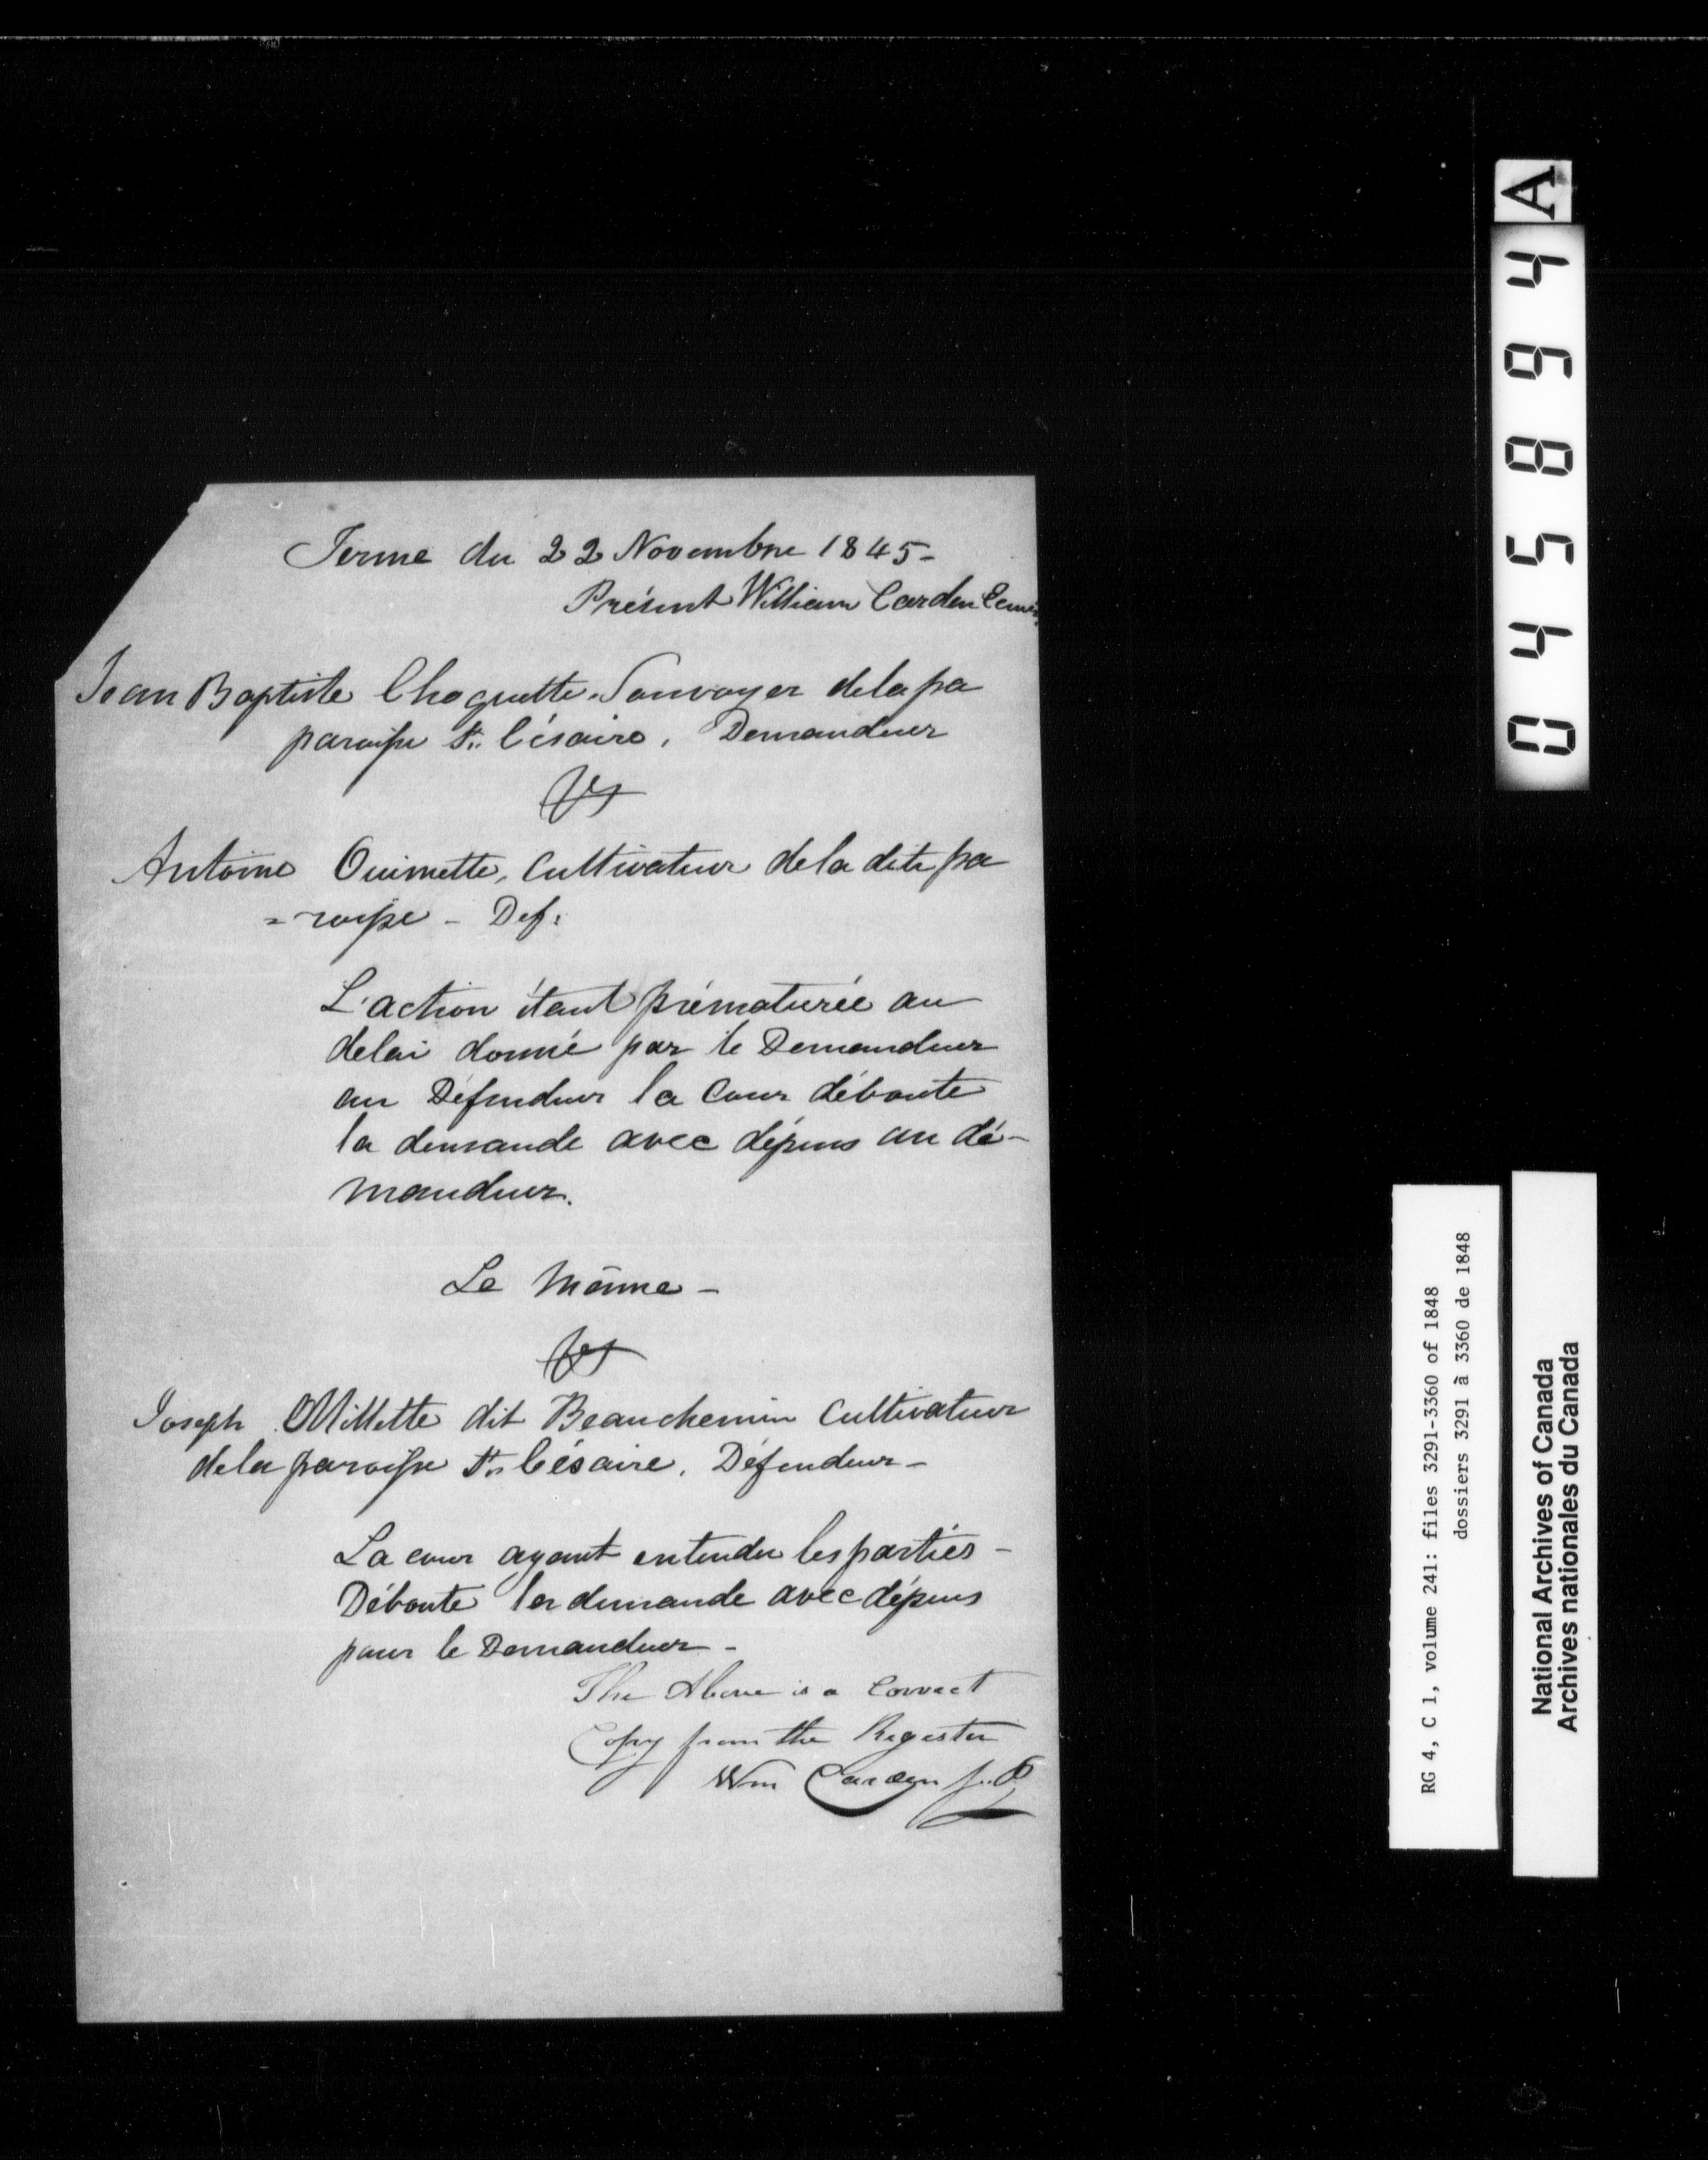 Terme du 22 Novembre 1845-
Présent William Carden
Jean Baptiste Choquette Sonvoyer de la pa
paroisse St. Césaire, Demandeur
Vs
Antoine Ouimette, Cultivateur de la dite pa
=roisse - Def:
L'action étant prématurée au
delai donné par le Demandeur
au Défendeur la Cour déboute
la demande avec dépens au dé-
mandeur.
Le Même -
Vs
Joseph Millette dit Beauchemin Cultivateur
de la paroisse St. Césaire, Défendeur -
La cour ayant entendu les parties -
Déboute la demande avec dépens
pour le Demandeur -
The Above is a Correct
Copy from the Register
Wm Carden J.P
045894 A
RG 4, C 1, volume 241: files 3291-3360 of 1848
dossiers 3291 à 3360 de 1848
National Archives of Canada
Archives nationales du Canada